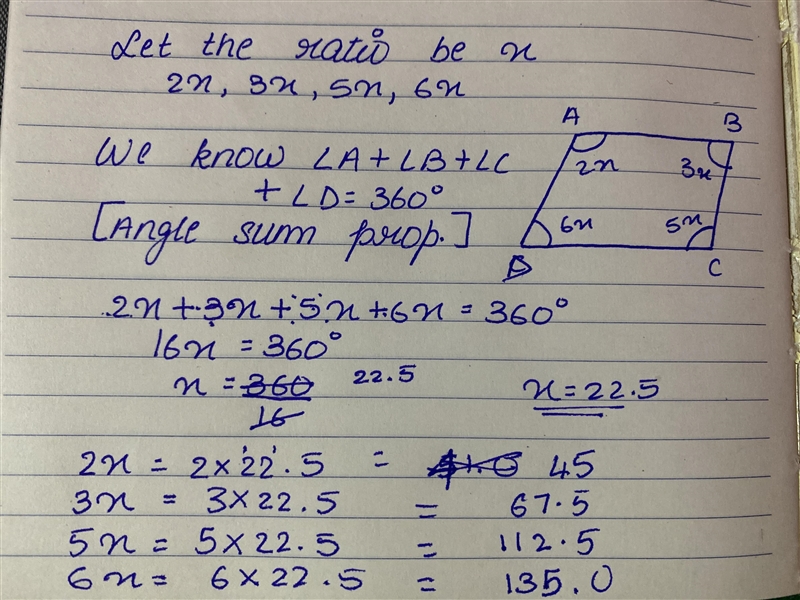 Let the ratio be x
2x, 3x, 5x, 6x
We know ∠A+∠B+∠C
+ ∠D = 360°
[Angle sum prop.]
A B
2x 3x
6x 5x
D C
2x + 3x + 5x + 6x = 360°
16x = 360°
x = 360/16 22.5 x = 22.5
2x = 2×22.5 = 45
3x = 3×22.5 = 67.5
5x = 5×22.5 = 112.5
6x = 6×22.5 = 135.0